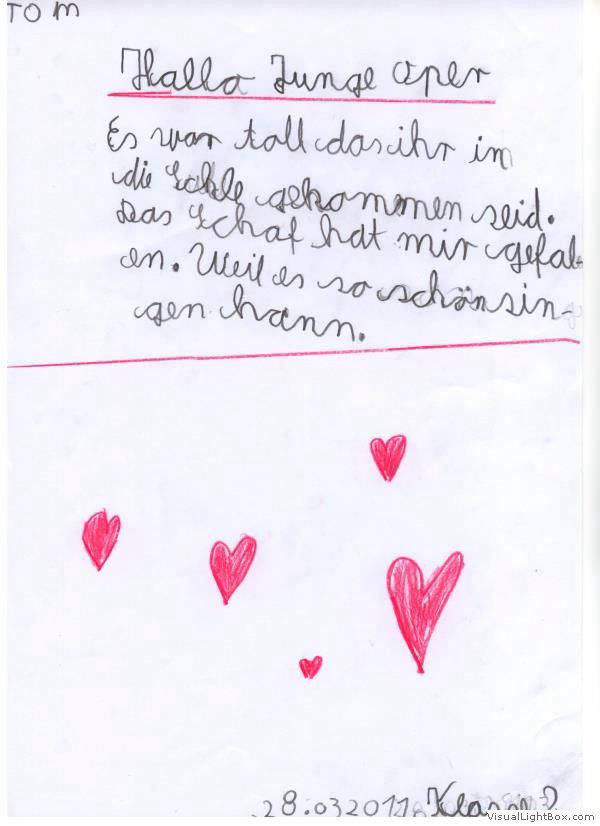 TOM
Hallo Junge Oper
Es war toll das ihr in
die Schle gekommen seid.
Das Schaf hat mir gefal-
en. Weil es so schön sin-
gen kann.
28.032011 Klasse
VisualLightBox.com